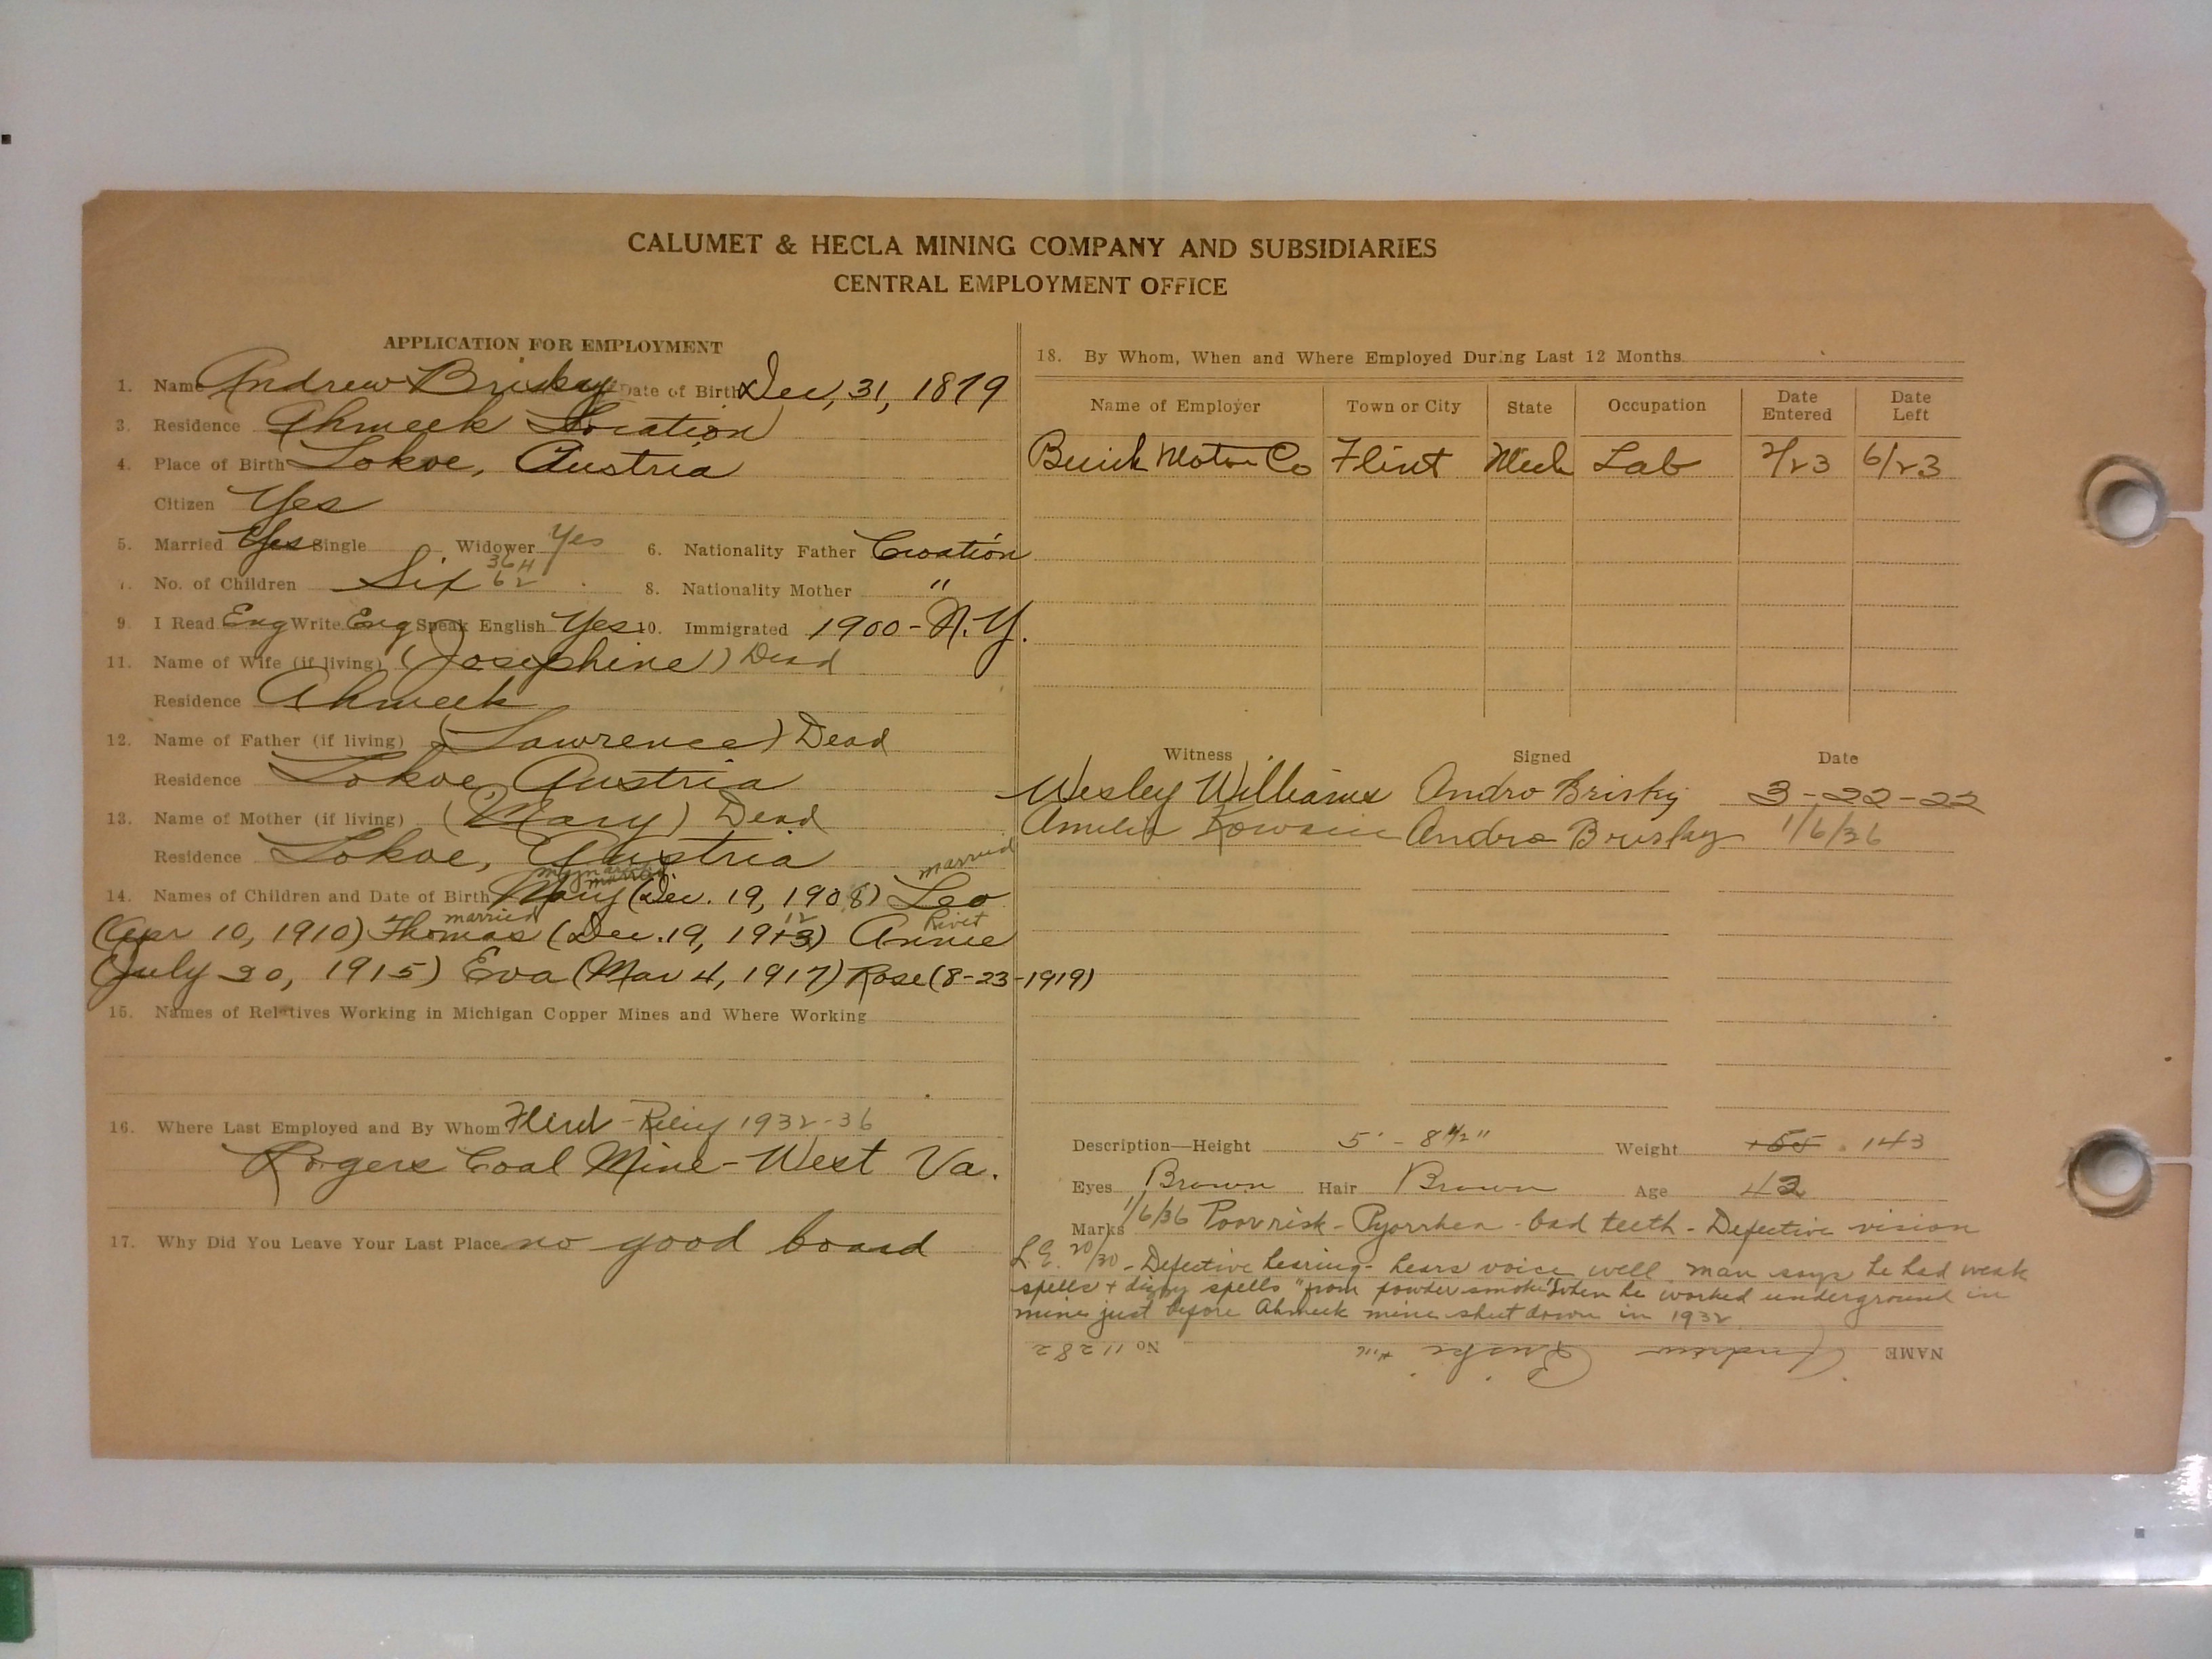 CALUMET & HECLA MINING COMPANY AND SUBSIDIARIES
CENTRAL EMPLOYMENT OFFICE
APPLICATION FOR EMPLOYMENT
1. Name Andrew Brisky Date of Birth Dec, 31, 1879
3. Residence Ahmeek Location
4. Place of Birth Lokve, Austria
Citizen Yes
5. Married Yes Single Widower Yes 6. Nationality Father Croation
7. No. of Children Six 62 8. Nationality Mother "
9. I Read Eng Write Eng Speak English Yes 10. Immigrated 1900 - N.Y.
11. Name of Wife (if living) (Josephine) Dead
Residence Ahmeek
12. Name of Father (if living) (Lawrence) Dead
Residence Lokve Austria
13. Name of Mother (if living) (Mary) Dead
Residence Lokve, Austria
married
married
14. Names of Children and Date of Birth Mary (Dec. 19, 1908) Leo
married 12
(Apr 10, 1910) Thomas (Dec. 19, 1913) Annie
(July 30, 1915) Eva (Mar 4, 1917) Rose (8-23-1919)
15. Names of Relatives Working in Michigan Copper Mines and Where Working
16. Where Last Employed and By Whom 1932-36
Rogers Coal Mine - West Va.
17. Why Did You Leave Your Last Place no good board
18. By Whom, When and Where Employed During Last 12 Months
Name of Employer Town or City State Occupation Date Entered Date Left
Buick Motor Co Flint Mich Lab 2/23 6/23
Witness Signed Date
Wesley Williams Andro Brisky 3-22-22
Amelia Andro Brisky 1/6/36
Description—Height 5' - 8 1/2" Weight 155 143
Eyes Brown Hair Brown Age 42
Marks 1/6/36 Poor risk - Pyorrhea - bad teeth - Defective vision
L.E. 20/30 - Defective hearing - hears voice well. man says he had weak
spells + dizzy spells "from powder smoke" when he worked underground in
mine just before Ahmeek mine shut down in 1932
NAME Andrew Briski No 11282